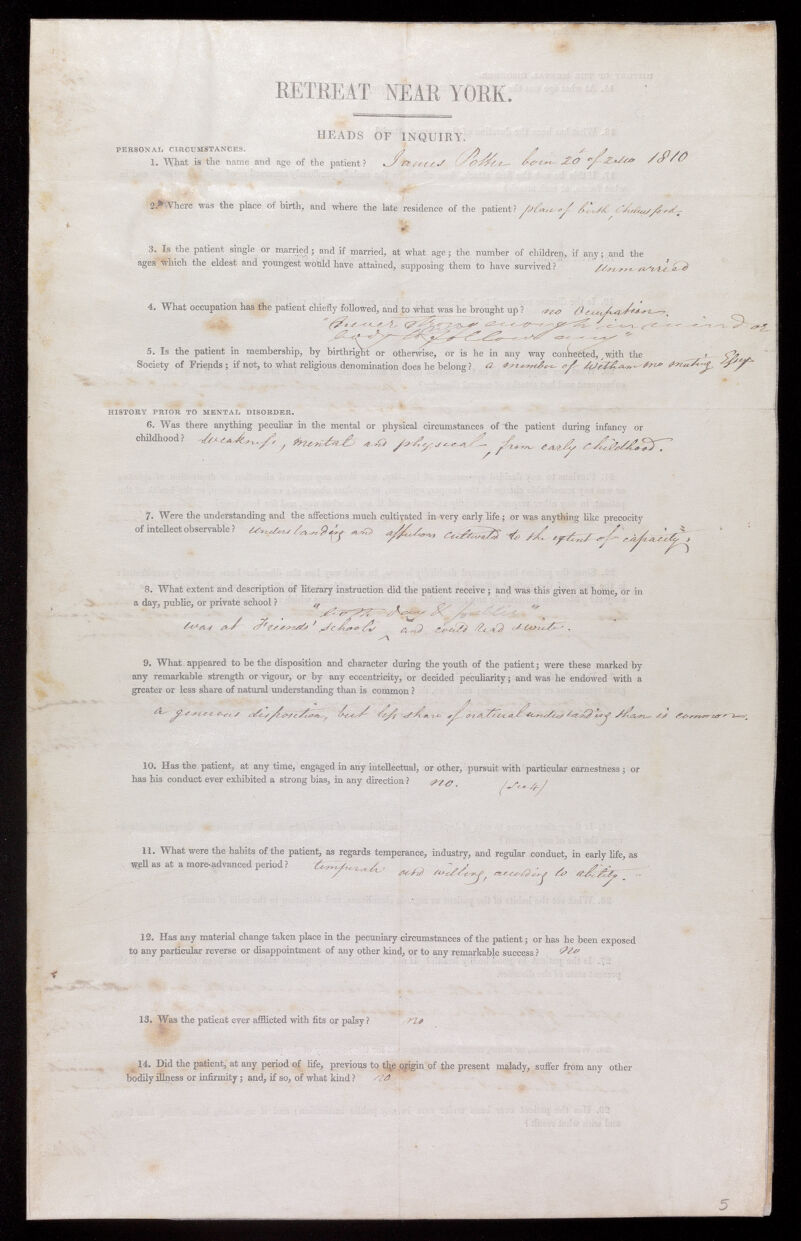 RETREAT NEAR YORK.
HEADS OF INQUIRY.
PERSONAL CIRCUMSTANCES.
1. What is the name and age of the patient? James born 20 of 1810
2. Where was the place of birth, and where the late residence of the patient? place of birth Chelmsford.
3. Is the patient single or married; and if married, at what age; the number of children, if any; and the
ages which the eldest and youngest would have attained, supposing them to have survived? Unmarried
4. What occupation has the patient chiefly followed, and to what was he brought up? no Occupation.
"never strong enough in mind or
body to follow any"
5. Is the patient in membership, by birthright or otherwise, or is he in any way connected, with the
Society of Friends; if not, to what religious denomination does he belong? a member of Witham mo meeting Essex
HISTORY PRIOR TO MENTAL DISORDER.
6. Was there anything peculiar in the mental or physical circumstances of the patient during infancy or
childhood? weakness, mental and physical, from early childhood.
7. Were the understanding and the affections much cultivated in very early life; or was anything like precocity
of intellect observable? understanding and affections cultivated to the extent of capacity.
8. What extent and description of literary instruction did the patient receive; and was this given at home, or in
a day, public, or private school? "both day &
was at Friends' schools and could read & write.
9. What appeared to be the disposition and character during the youth of the patient; were these marked by
any remarkable strength or vigour, or by any eccentricity, or decided peculiarity; and was he endowed with a
greater or less share of natural understanding than is common?
a generous disposition, but less share of natural understanding than is common.
10. Has the patient, at any time, engaged in any intellectual, or other, pursuit with particular earnestness; or
has his conduct ever exhibited a strong bias, in any direction? no. (See 4)
11. What were the habits of the patient, as regards temperance, industry, and regular conduct, in early life, as
well as at a more advanced period? temperate and willing, according to ability.
12. Has any material change taken place in the pecuniary circumstances of the patient; or has he been exposed
to any particular reverse or disappointment of any other kind, or to any remarkable success? No
13. Was the patient ever afflicted with fits or palsy? no
14. Did the patient, at any period of life, previous to the origin of the present malady, suffer from any other
bodily illness or infirmity; and, if so, of what kind? no
5